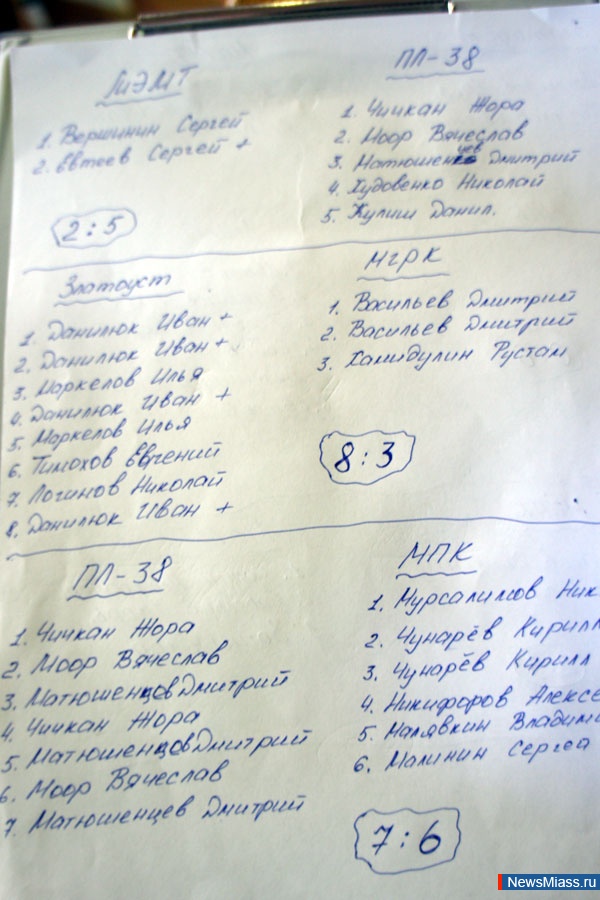 МиЭМТ
1. Вершинин Сергей
2. Евтеев Сергей +
2:5
ПЛ-38
1. Чичкан Жора
2. Моор Вячеслав
3. Матюшенцев Дмитрий
4. Худовенко Николай
5. Кулиш Данил.
Златоуст
1. Данилюк Иван +
2. Данилюк Иван +
3. Маркелов Илья
4. Данилюк Иван +
5. Маркелов Илья
6. Тимохов Евгений
7. Логинов Николай
8. Данилюк Иван +
МГРК
1. Васильев Дмитрий
2. Васильев Дмитрий
3. Хамидулин Рустам
8:3
ПЛ-38
1. Чичкан Жора
2. Моор Вячеслав
3. Матюшенцев Дмитрий
4. Чичкан Жора
5. Матюшенцев Дмитрий
6. Моор Вячеслав
7. Матюшенцев Дмитрий
МПК
1. Мурсалимов Ник
2. Чунарёв Кирилл
3. Чунарёв Кирилл
4. Никифоров Алексе
5. Малявкин Владими
6. Малинин Сергей
7:6
NewsMiass.ru